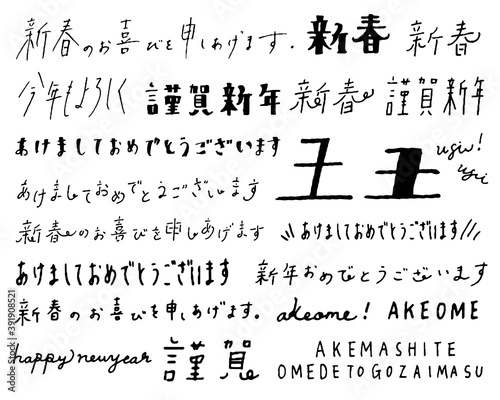 新春のお喜びを申しあげます. 新春 新春
今年もよろしく 謹賀新年 新春 謹賀新年
あけましておめでとうございます 丑 丑 ushi! ushi
あけましておめでとうございます
新春のお喜びを申しあげます \\あけましておめでとうございます//
あけましておめでとうございます 新年おめでとうございます
新春のお喜びを申しあげます。 akeome! AKEOME
happy newyear 謹賀 AKEMASHITE
OMEDETOGOZAIMASU
Adobe Stock | #391908521